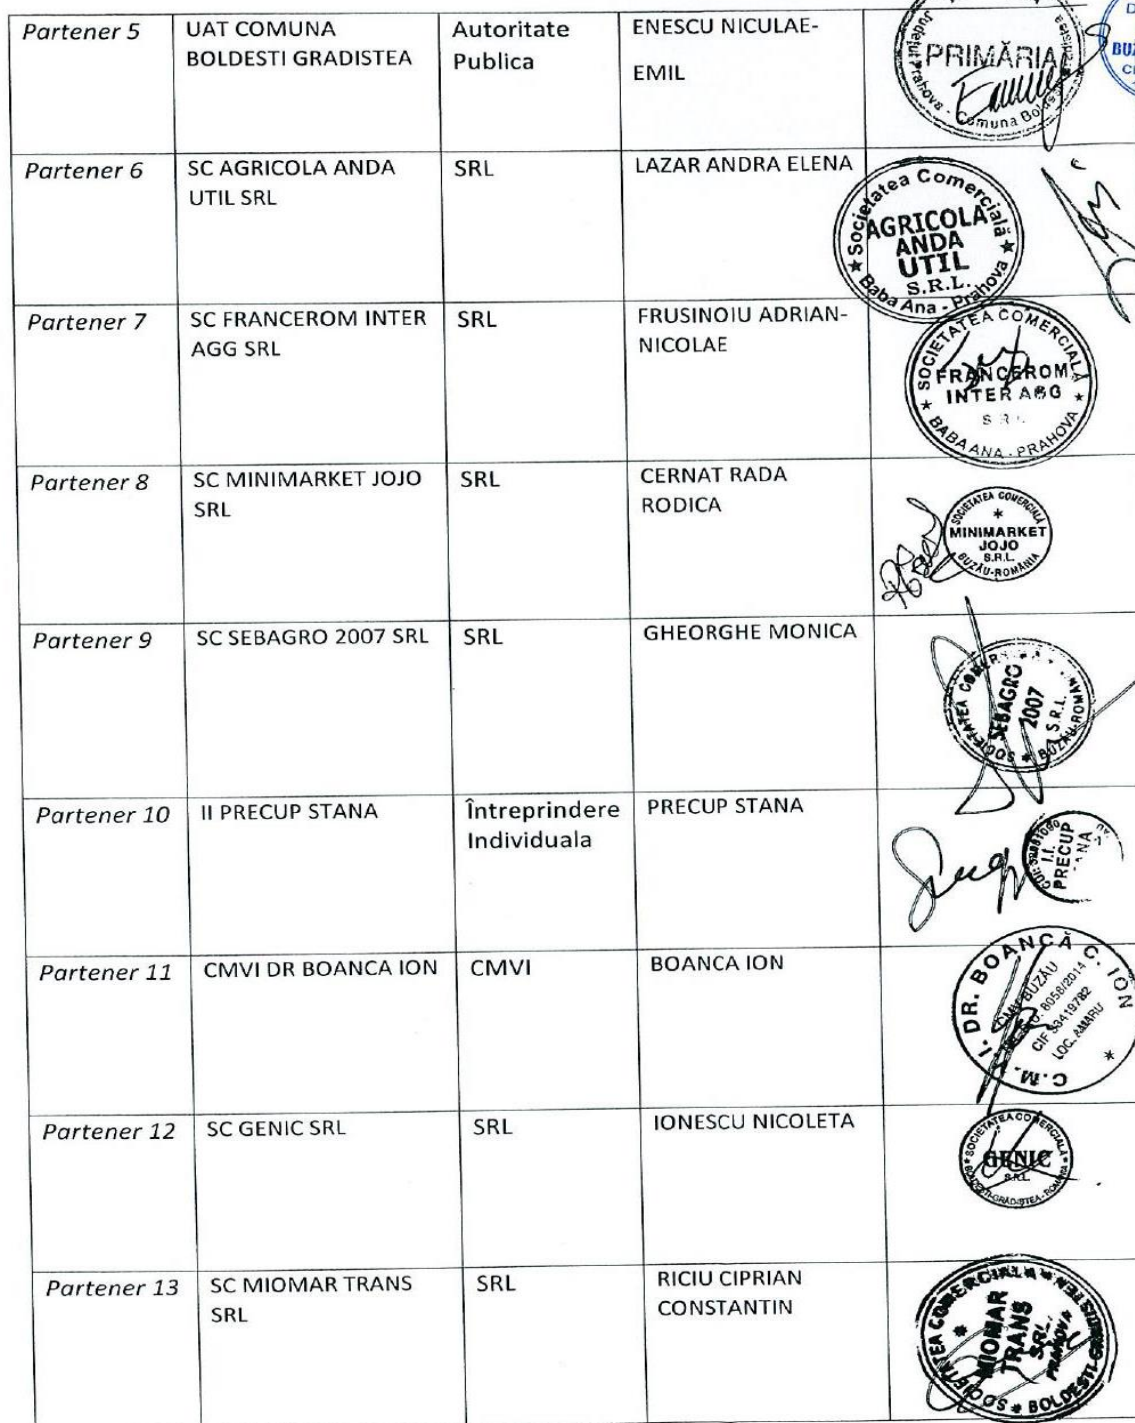 Partener 5 UAT COMUNA Autoritate ENESCU NICULAE-
BOLDESTI GRADISTEA Publica EMIL
PRIMĂRIA
Județul Prahova - Comuna
Partener 6 SC AGRICOLA ANDA SRL LAZAR ANDRA ELENA
UTIL SRL
Societatea Comercială
AGRICOLA
ANDA
UTIL
S.R.L.
Baba Ana - Prahova
Partener 7 SC FRANCEROM INTER SRL FRUSINOIU ADRIAN-
AGG SRL NICOLAE
SOCIETATEA COMERCIALĂ
FRANCEROM
INTER AGG
S.R.L.
BABA ANA - PRAHOVA
Partener 8 SC MINIMARKET JOJO SRL CERNAT RADA
SRL RODICA
SOCIETATEA COMERCIALĂ
MINIMARKET
JOJO
S.R.L.
BUZĂU-ROMÂNIA
Partener 9 SC SEBAGRO 2007 SRL SRL GHEORGHE MONICA
SOCIETATEA
SEBAGRO
2007
S.R.L.
Partener 10 II PRECUP STANA Întreprindere PRECUP STANA
Individuala
I.I.
PRECUP
Partener 11 CMVI DR BOANCA ION CMVI BOANCA ION
C.M. I. DR. BOANCĂ C. ION
BUZĂU
8058/2014
CIF 33419782
LOC. AMARU
Partener 12 SC GENIC SRL SRL IONESCU NICOLETA
SOCIETATEA COMERCIALA
GENIC
S.R.L.
BOLDESTI-GRĂDIȘTEA-ROMANIA
Partener 13 SC MIOMAR TRANS SRL RICIU CIPRIAN
SRL CONSTANTIN
SOCIETATEA COMERCIALA
MIOMAR
TRANS
SRL
PRAHOVA